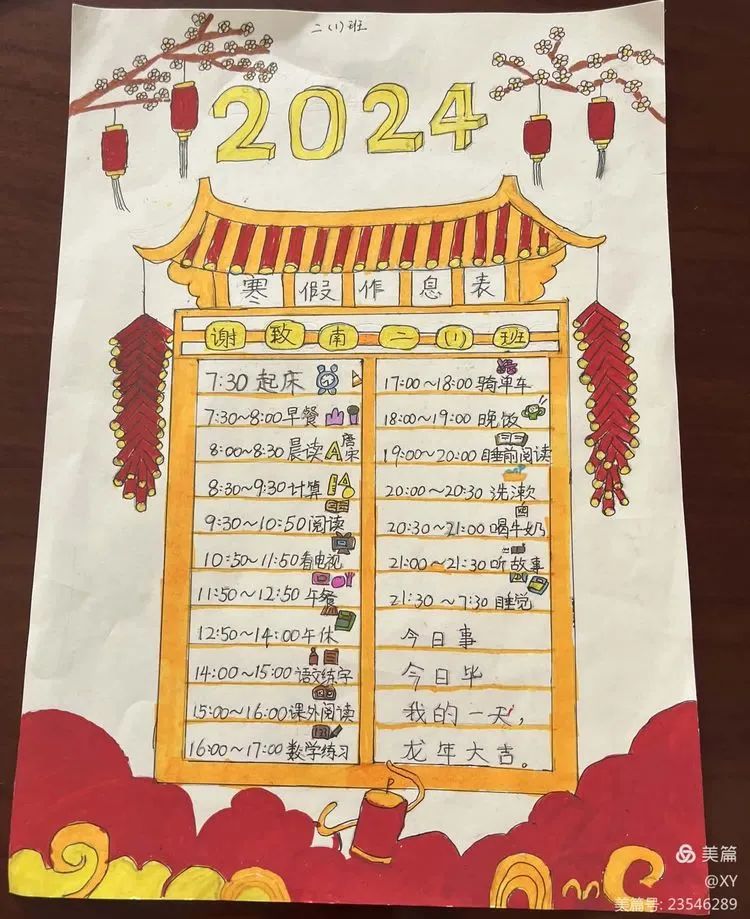 二(1)班
2024
寒假作息表
谢致南二(1)班
7:30 起床
7:30~8:00早餐
8:00~8:30晨读A唐宋
8:30~9:30计算
9:30~10:50阅读
10:50~11:50看电视
11:50~12:50午餐
12:50~14:00午休
14:00~15:00语文练字
15:00~16:00课外阅读
16:00~17:00数学练习
17:00~18:00骑单车
18:00~19:00晚饭
19:00~20:00睡前阅读
20:00~20:30洗漱
20:30~21:00喝牛奶
21:00~21:30听故事
21:30~7:30睡觉
今日事
今日毕
我的一天,
龙年大吉。
美篇
@XY
美篇号: 23546289